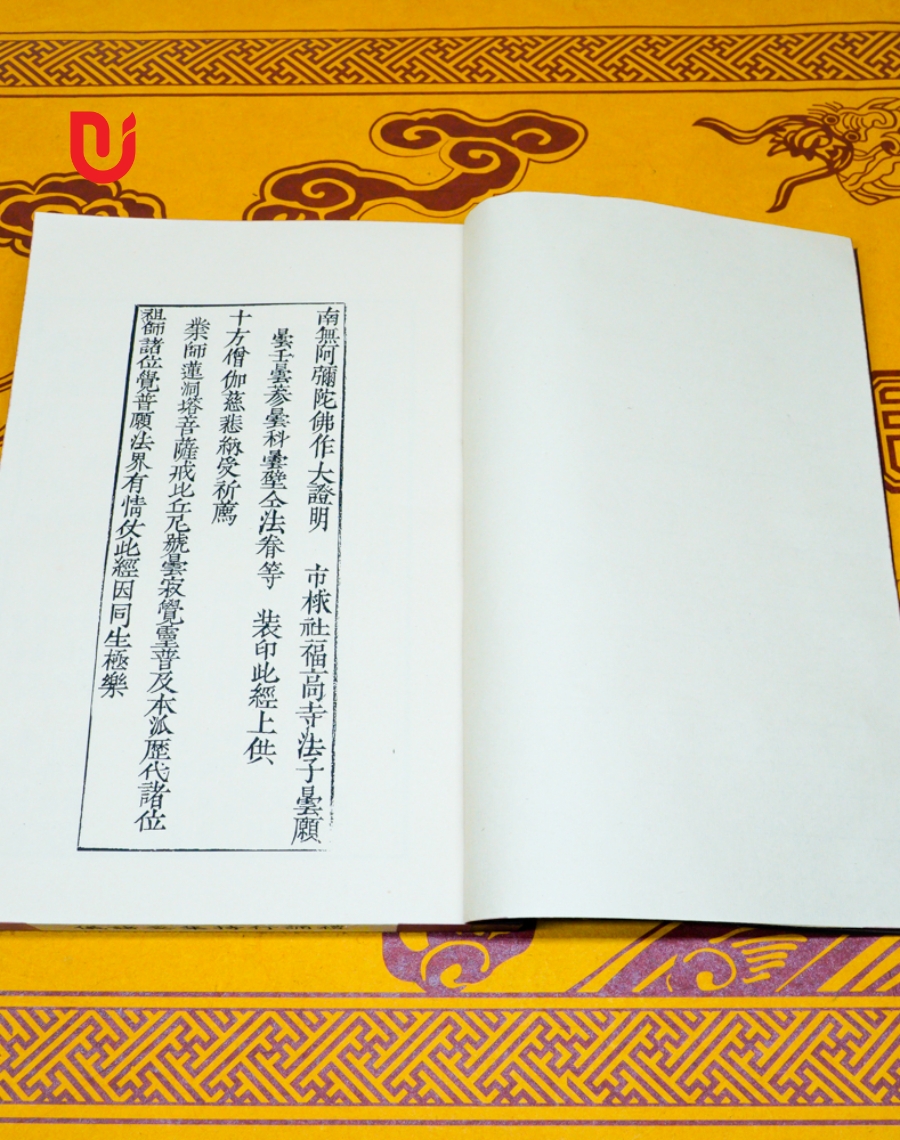 南無阿彌陀佛作大證明 市梂社福高寺法子曇願
曇壬曇蔘曇科曇壁仝法眷等 装印此經上供
十方僧伽慈悲納受祈薦
業師蓮洞塔菩薩戒比丘尼號曇寂覺靈普及本派歷代諸位
祖師諸位覺普願法界有情仗此經因同生極樂